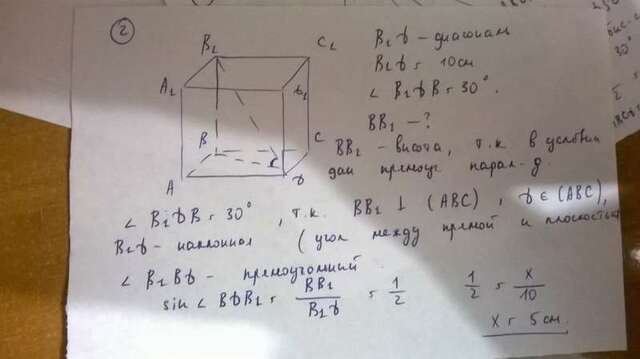 2
B₁D – диагональ
B₁D = 10 см
∠ B₁DB = 30°.
BB₁ – ?
BB₁ – высота, т.к в условии
дан прямоуг парал-д.
B₁ C₁ A₁ D₁ B C A D
∠ B₁DB = 30°, т.к. BB₁ ⊥ (ABC), D ∈ (ABC),
B₁D – наклонная (угол между прямой и плоскостью
∠ B₁BD – прямоугольный
sin ∠ BDB₁ = BB₁ / B₁D = 1/2
1/2 = x/10
x = 5 см.